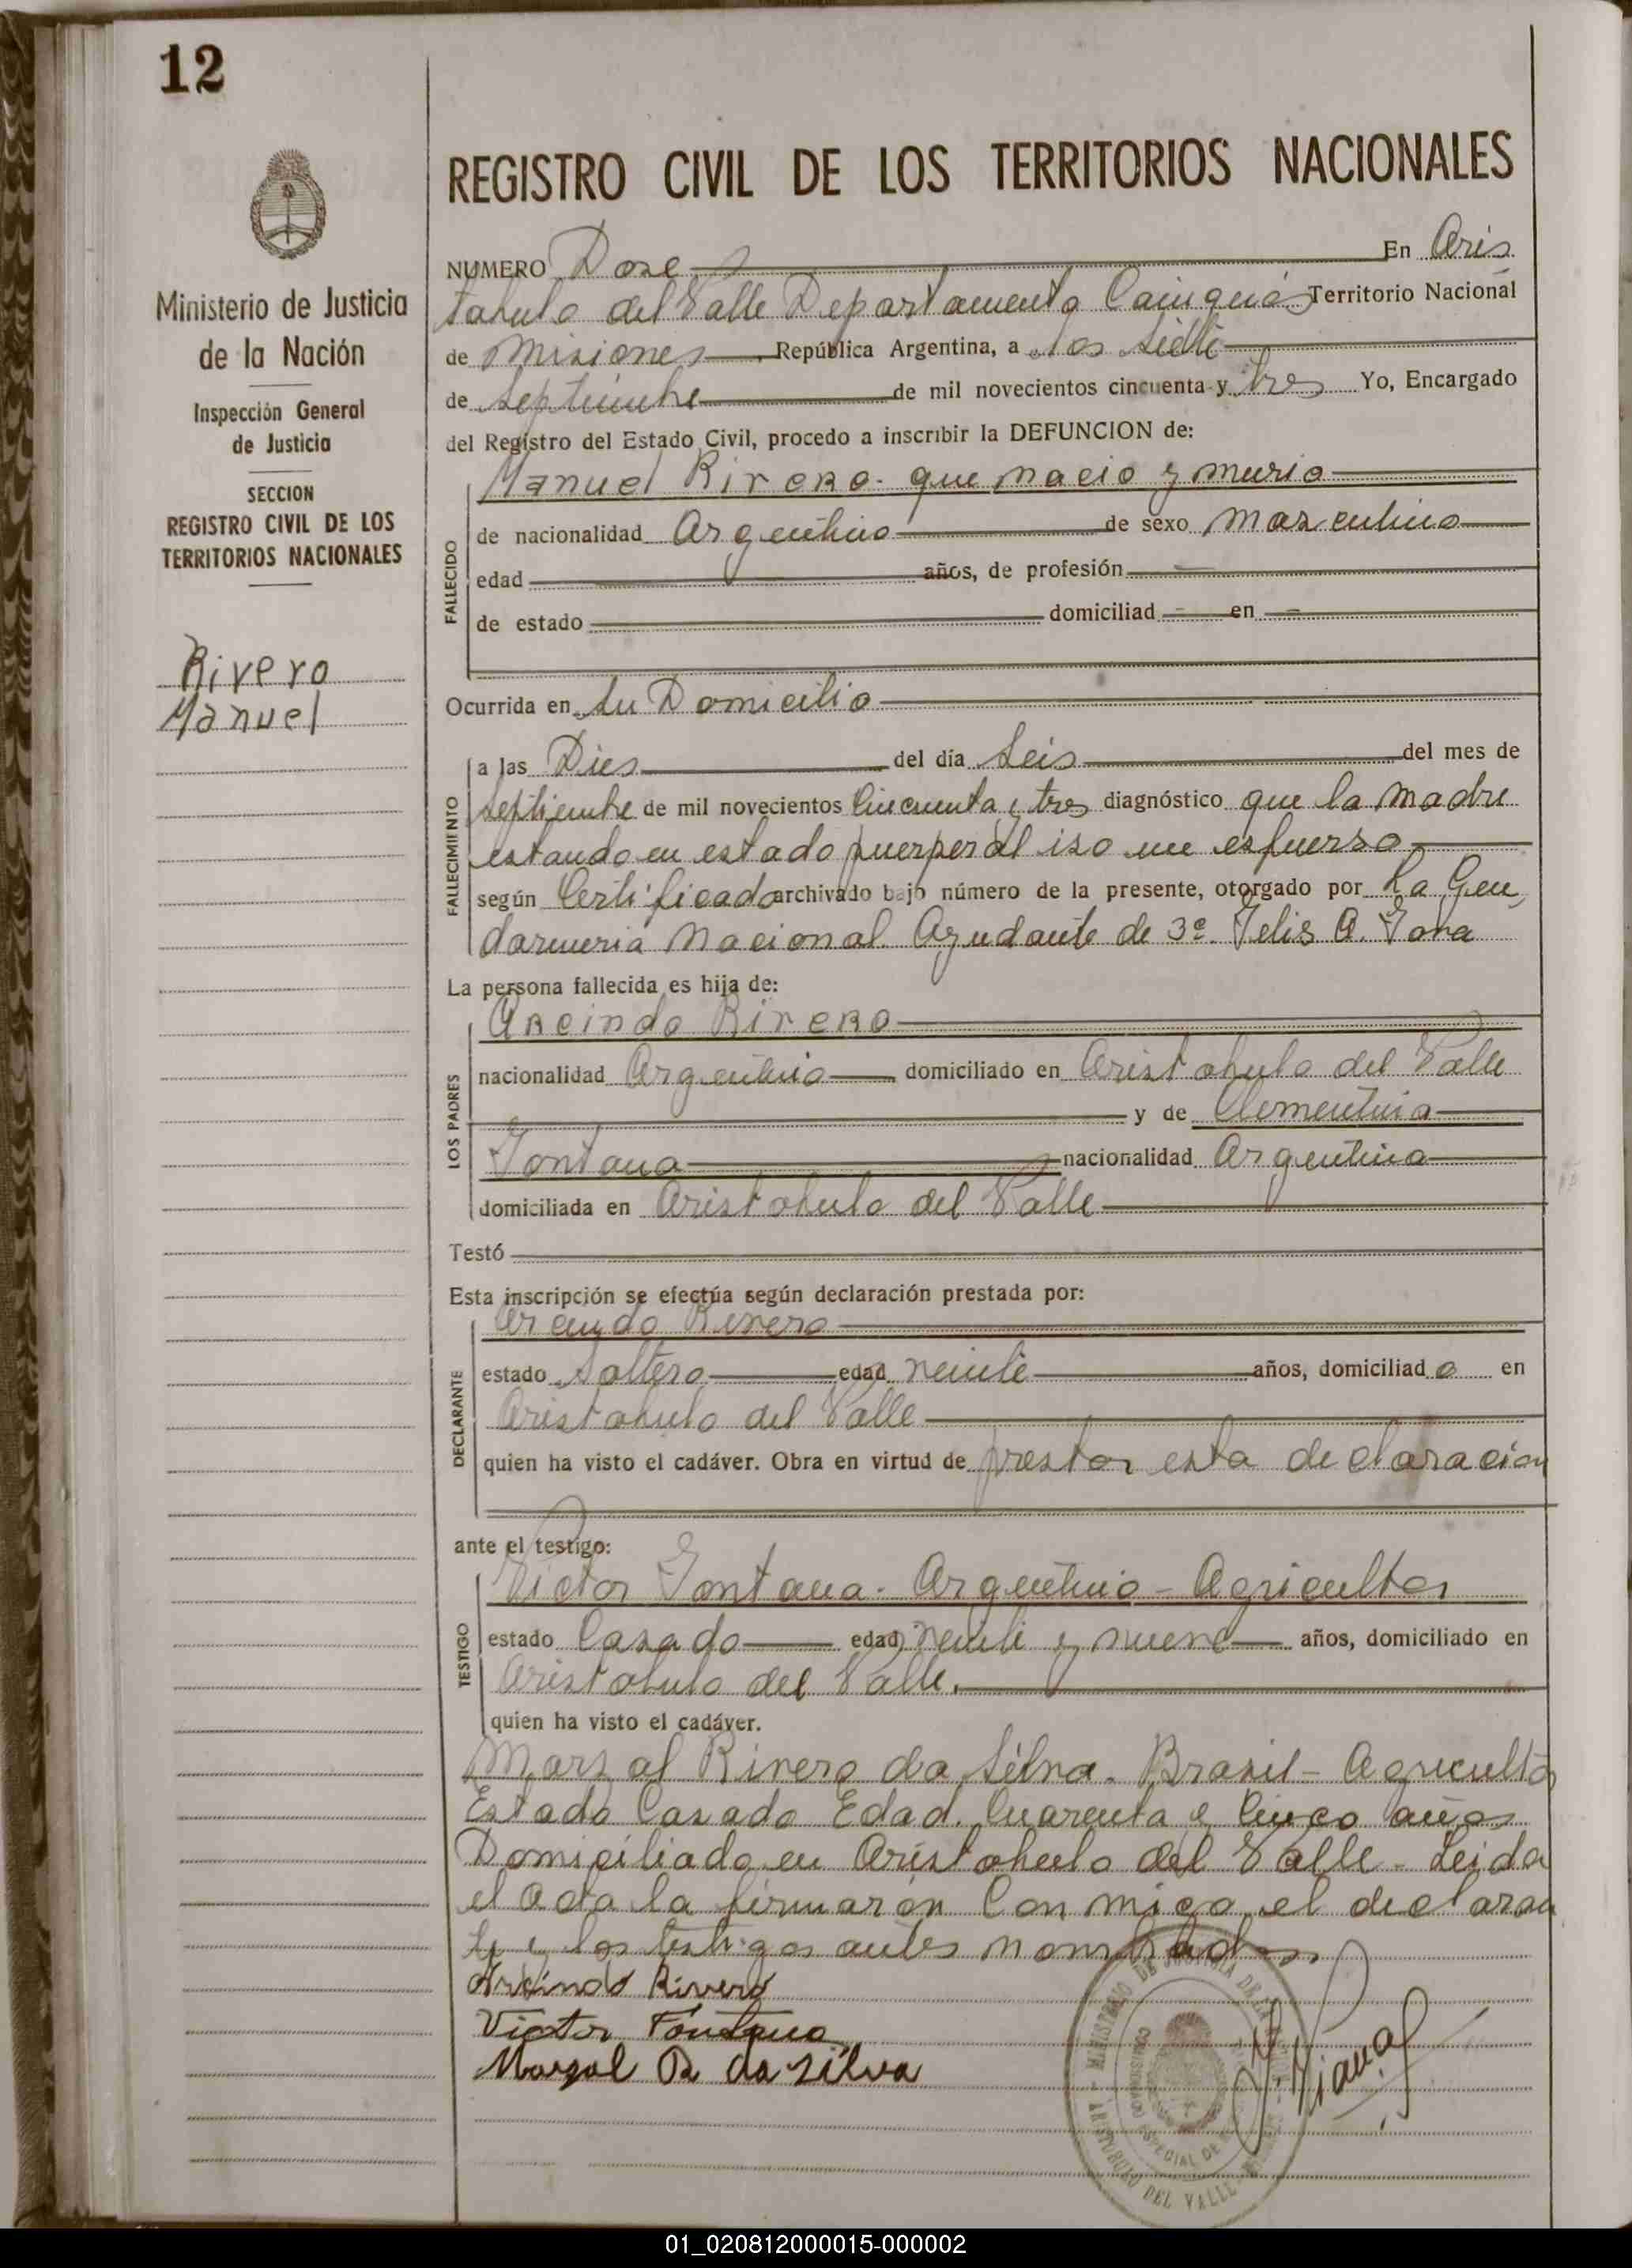 12
REGISTRO CIVIL DE LOS TERRITORIOS NACIONALES
Ministerio de Justicia
de la Nación
Inspección General
de Justicia
SECCION
REGISTRO CIVIL DE LOS
TERRITORIOS NACIONALES
Rivero
Manuel
NUMERO Dose En Aris
tobulo del Valle Departamento Cainguás Territorio Nacional
de Misiones, República Argentina, a los siete
de Septiembre de mil novecientos cincuenta y tres Yo, Encargado
del Registro del Estado Civil, procedo a inscribir la DEFUNCION de:
Manuel Rivero. que nacio y murio
FALLECIDO
de nacionalidad Argentino de sexo Masculino
edad años, de profesión
de estado domiciliad - en -
Ocurrida en su Domicilio
FALLECIMIENTO
a las Dies del día Seis del mes de
Septiembre de mil novecientos Cincuenta y tres diagnóstico que la madre
estando en estado puerperal iso un esfuerso
según Certificado archivado bajo número de la presente, otorgado por La Gen
darmeria Nacional. Ayudante de 3º.
La persona fallecida es hija de:
LOS PADRES
Arcindo Rivero
nacionalidad Argentino domiciliado en Aristobulo del Valle
y de Clementina
Fontana nacionalidad Argentina
domiciliada en Aristobulo del Valle
Testó
Esta inscripción se efectúa según declaración prestada por:
DECLARANTE
Arcindo Rivero
estado Soltero edad veinte años, domiciliad o en
Aristobulo del Valle
quien ha visto el cadáver. Obra en virtud de prestar esta declaracion
ante el testigo:
TESTIGO
Victor Fontana. Argentino - Agricultor
estado Casado edad veinte y nueve años, domiciliado en
Aristobulo del Valle.
quien ha visto el cadáver.
Marzal Rivero da Silva. Brasil - Agricultor
Estado Casado Edad. Cuarenta y Cinco años
Domiciliado en Aristobulo del Valle - Leida
el Acta la firmarón Con migo el declaran
te y los testigos antes nombrados.
Arcindo Rivero
Victor Fontana
Marzal R da Silva
MINISTERIO DE JUSTICIA
ARISTOBULO DEL VALLE
01_020812000015-000002